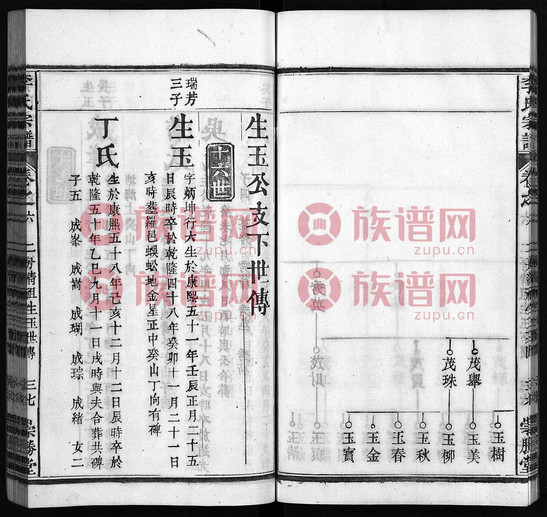 茂舉
茂珠
玉樹
玉美
玉柳
玉秋
玉春
玉金
玉賓
生玉公支下世傳
十六世
瑞芳
三子
生玉
字炳坤行大生於康熙五十一年壬辰正月二十五
日辰時卒於乾隆四十八年癸卯十一月二十一日
亥時墓羅邑蜈蚣地金星正中癸山丁向有碑
丁氏
生於康熙五十八年己亥十二月十二日辰時卒於
乾隆五十年乙巳九月十一日戌時與夫合葬共碑
子五 成峯 成嵩 成瑚 成琮 成緒 女二
李氏宗譜
卷之六
三七
崇勝堂
族谱网
zupu.cn